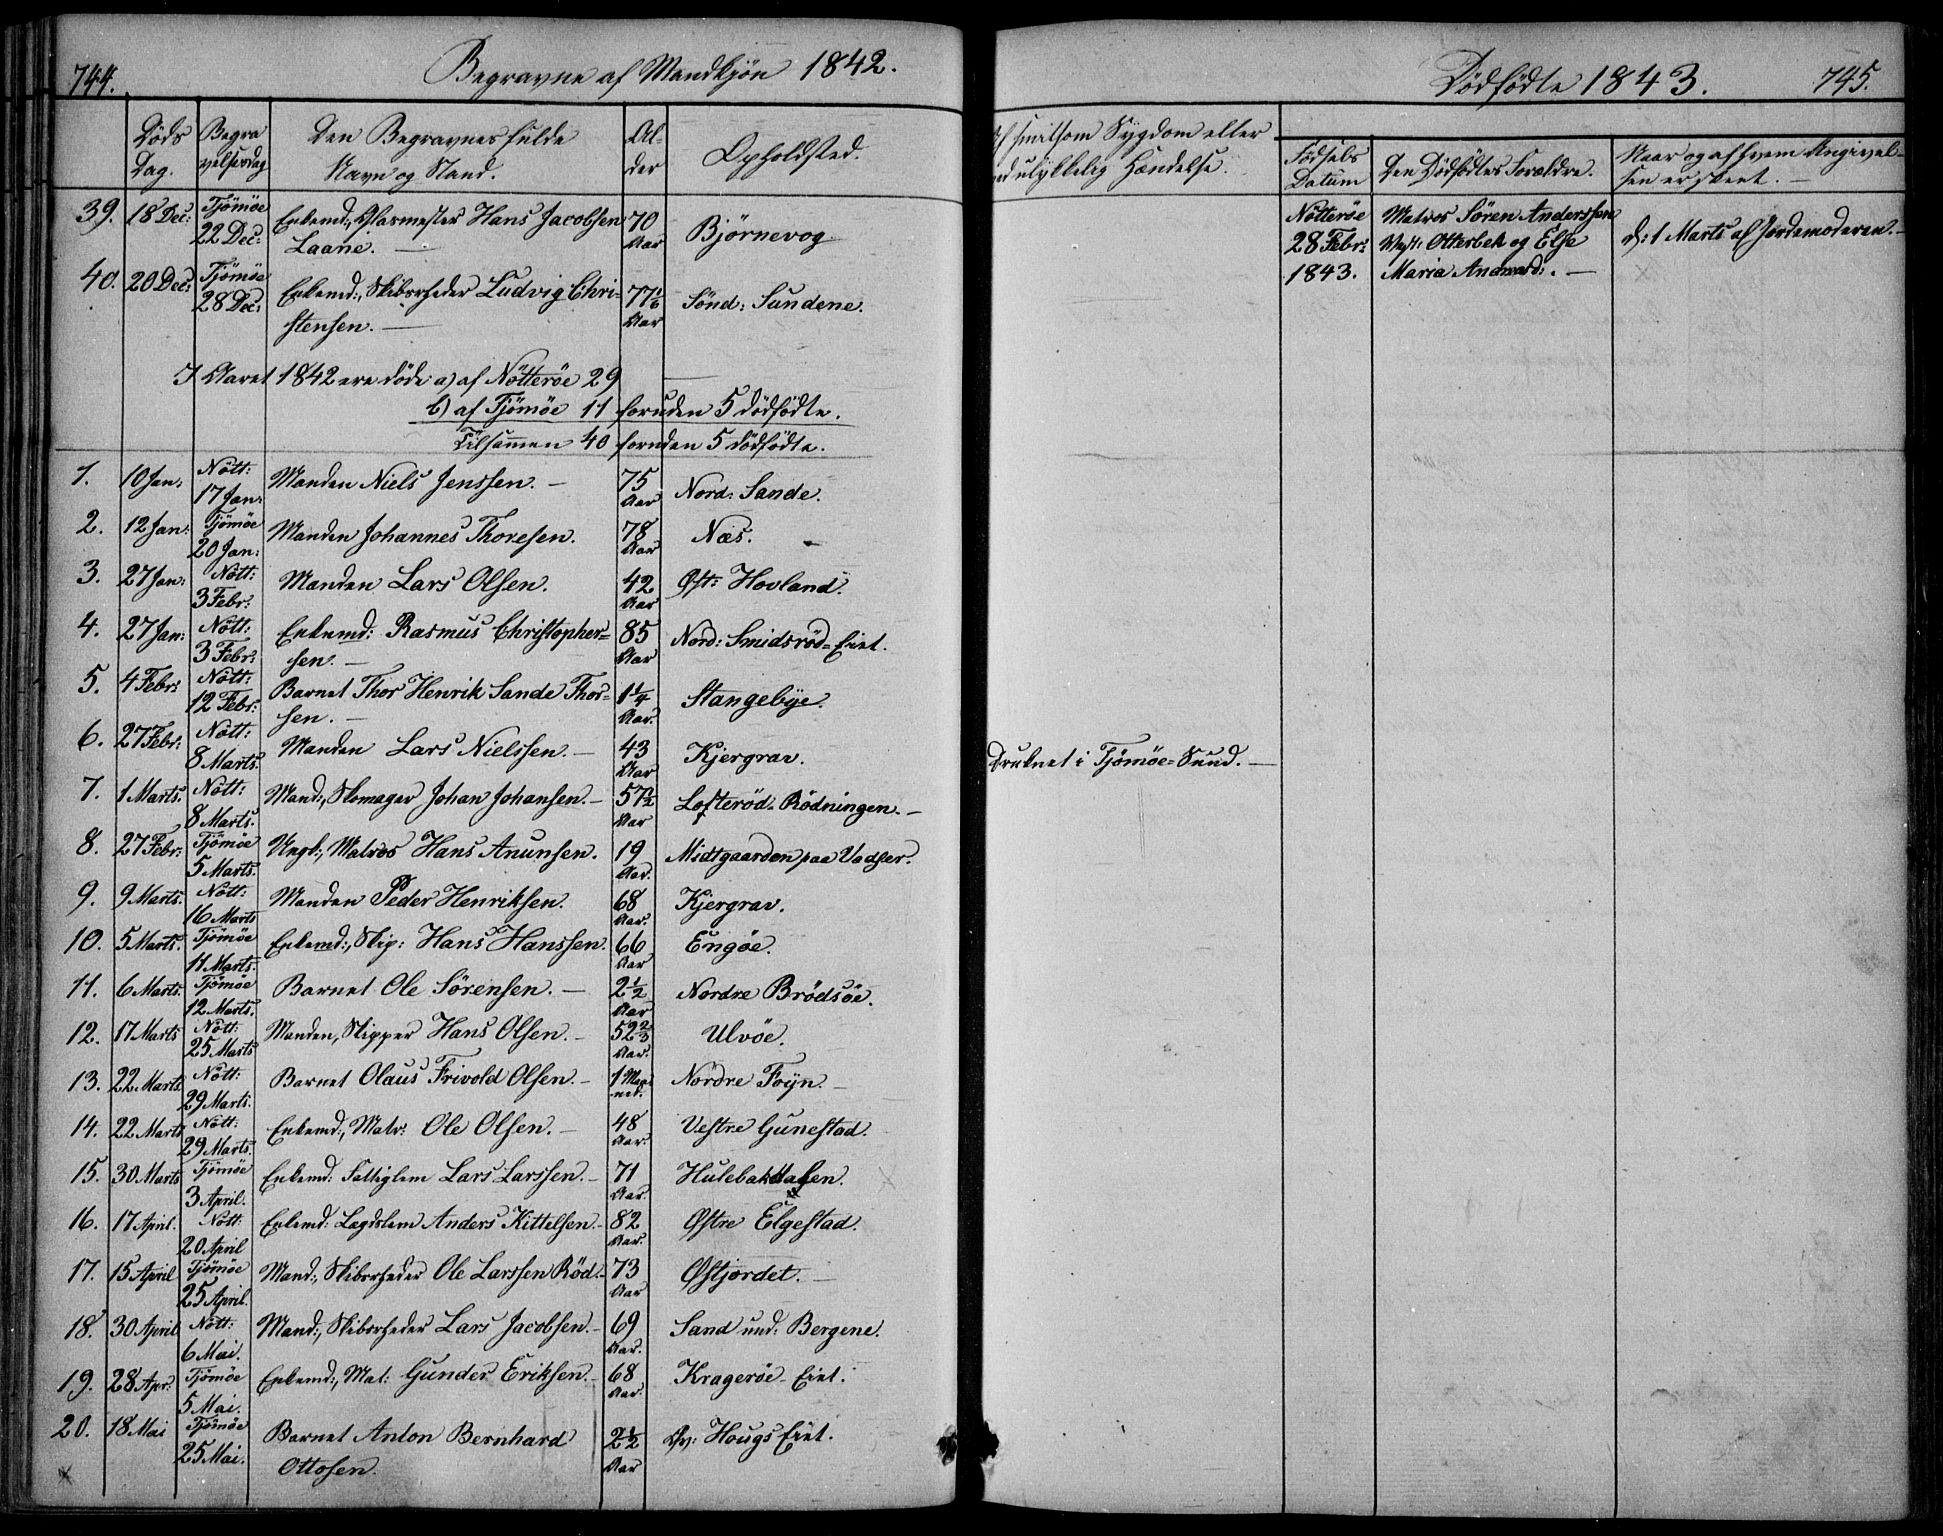 744.
Begravne af Mandkjön 1842.
Døds Dag. Begravelsesdag Den Begravnes fulde Navn og Stand. Alder Opholdsted.
39. 18 Dec: Tjömöe 22 Dec: Enkemd:, Glasmester Hans Jacobsen 70 Aar Bjørnevog
Laane. —
40. 20 Dec: Tjömöe 28 Dec: Enkemd:, Skibsrheder Ludvig Chri- 77 1/6 Aar Sönd: Sundene.
stensen. —
I Aaret 1842 ere døde a) af Nötteröe 29
b) af Tjömöe 11 foruden 5 dödfödte.
Tilsammen 40 foruden 5 dödfödte.
1. 10 Jan: Nött: 17 Jan: Manden Niels Jenssen. — 75 Aar Nord: Sande.
2. 12 Jan: Tjömöe 20 Jan: Manden Johannes Thoresen. 78 Aar Næs.
3. 27 Jan: Nött: 3 Febr: Manden Lars Olsen. 42 Aar Øst: Hovland.
4. 27 Jan: Nött: 3 Febr: Enkemd: Rasmus Christopher- 85 Aar Nord: Smidsröd-Eiet.
sen. —
5. 4 Febr: Nött: 12 Febr: Barnet Thor Henrik Sande Thor- 1 1/4 Aar. Stangebye.
sen. —
6. 27 Febr: Nött: 8 Marts. Manden Lars Nielssen. — 43 Aar Kjergrav.
7. 1 Marts. Nött: 8 Marts. Mand:, Skomager Johan Johansen. — 57 1/2 Aar Lofteröd-Rödningen. —
8. 27 Febr: Tjömöe 5 Marts. Ungk:, Matros Hans Anunsen. 19 Aar. Midtgaarden paa Vadser.
9. 9 Marts. Nött: 16 Marts Manden Peder Henriksen. 68 Aar. Kjergrav.
10. 5 Marts. Tjömöe 11 Marts. Enkemd:, Skip: Hans Hanssen. 66 Aar Engöe.
11. 6 Marts. Tjömöe 12 Marts. Barnet Ole Sörensen. — 2 1/2 Aar Nordre Brödsöe.
12. 17 Marts Nött: 25 Marts Manden, Skipper Hans Olsen. — 52 2/3 Aar. Ulvöe.
13. 22 Marts. Nött: 29 Marts. Barnet Olaus Frivold Olsen. — 1 Maanet. Nordre Foyn. —
14. 22 Marts Nött: 29 Marts. Enkemd:, Matr: Ole Olsen. — 48 Aar. Vestre Gunestad.
15. 30 Marts Tjömöe 3 April. Enkemd: Fattiglem Lars Larssen. — 71 Aar.
16. 17 April. Nött: 20 April Enkemd: Lægdslem Anders Kittelsen. — 82 Aar. Østre Elgestad.
17. 15 April Tjömöe 25 April. Mand:, Skibsrheder Ole Larssen Röd. — 73 Aar Østjordet. —
18. 30 April Nött: 6 Mai. Mand:, Skibsrheder Lars Jacobsen. — 69 Aar. Sand und: Bergene.
19. 28 Apr: Tjömöe 5 Mai. Enkemd:, Mat: Gunder Eriksen. — 68 Aar. Krageröe-Eiet.
20. 18 Mai Tjömöe 25 Mai. Barnet Anton Bernhard 2 1/2 Aar Hougs Eiet.
Ottosen.
Dödfödte 1843. 745.
Af smitsom Sygdom eller
ved ulykkelig Hændelse.
Druknet i Tjömöe-Sund. —
Fødsels Datum Den Dödfödtes Forældre. Naar og af hvem Angivel-
sen er skeet. —
Nötteröe Matros Sören Anderssen
28 Febr: Otterbek og Else d: 1 Marts af Jordemoderen. —
1843. Maria —